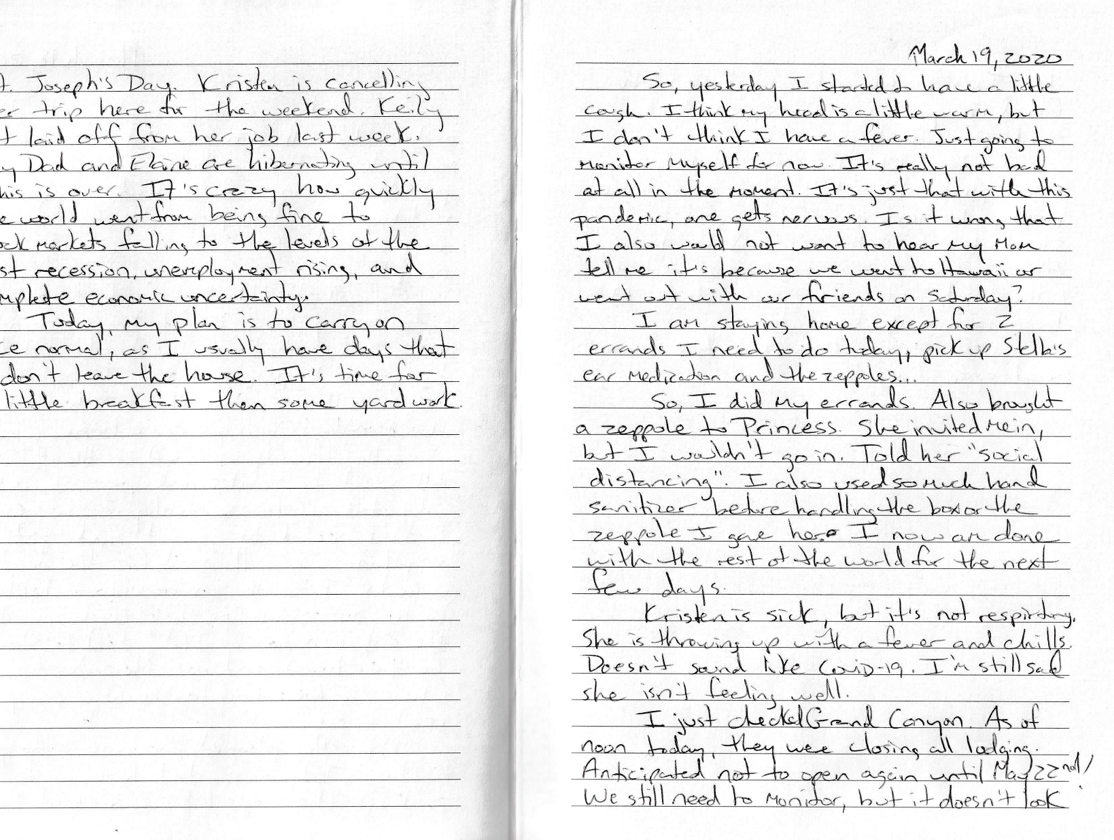 t. Joseph's Day. Kristen is cancelling
er trip here for the weekend. Keily
t laid off from her job last week.
y Dad and Elaine are hibernating until
his is over. It's crazy how quickly
e world went from being fine to
ock markets falling to the levels of the
st recession, unemployment rising, and
mplete economic uncertainty.
Today, my plan is to carry on
ke normal, as I usually have days that
don't leave the house. It's time for
little breakfast then some yard work.
March 19, 2020
So, yesterday I started to have a little
cough. I think my head is a little warm, but
I don't think I have a fever. Just going to
monitor myself for now. It's really not bad
at all in the moment. It's just that with this
pandemic, one gets nervous. Is it wrong that
I also would not want to hear my Mom
tell me it's because we went to Hawaii or
went out with our friends on Saturday?
I am staying home except for 2
errands I need to do today, pick up Stella's
ear medication and the zeppoles...
So, I did my errands. Also brought
a zeppole to Princess. She invited me in,
but I wouldn't go in. Told her "social
distancing". I also used so much hand
sanitizer before handling the box or the
zeppole I gave her. I now am done
with the rest of the world for the next
few days.
Kristen is sick, but it's not respirtory.
She is throwing up with a fever and chills.
Doesn't sound like Covid-19. I'm still sad
she isn't feeling well.
I just checked Grand Canyon. As of
noon today, they were closing all lodging.
Anticipated not to open again until May 22nd!
We still need to monitor, but it doesn't look